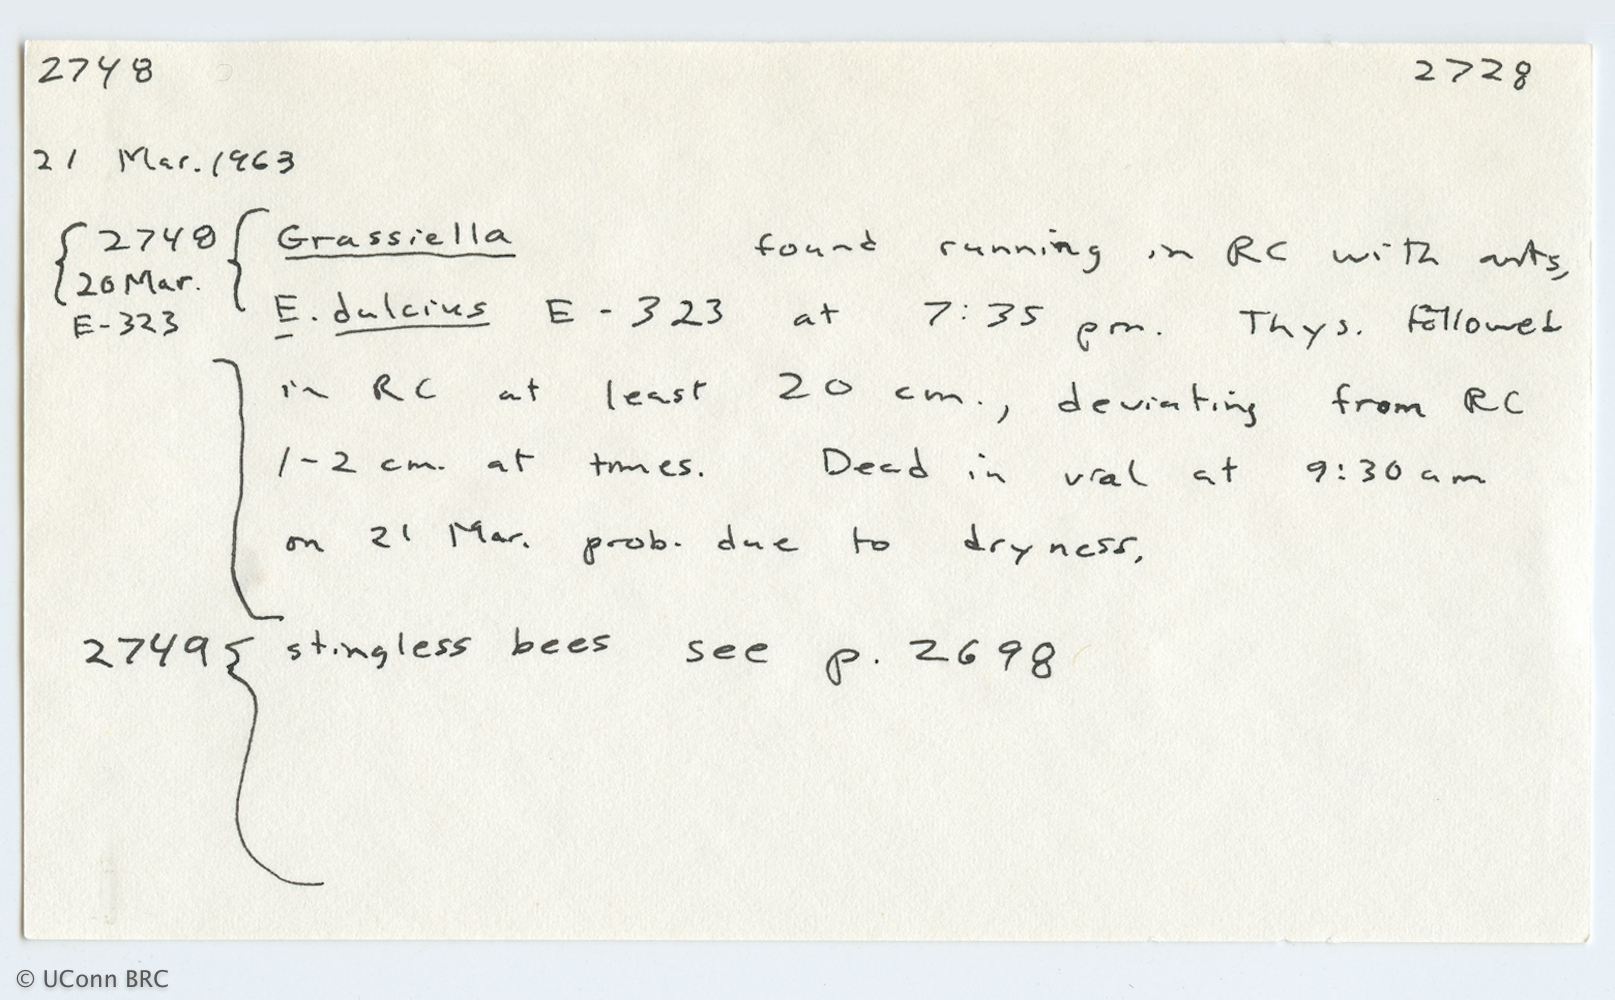 2748 2728
21 Mar. 1963
2748 Grassiella found running in RC with ants,
20 Mar.
E-323 E. dulcius E-323 at 7:35 pm. Thys. followed
in RC at least 20 cm., deviating from RC
1-2 cm. at times. Dead in vial at 9:30 am
on 21 Mar. prob. due to dryness.
2749 stingless bees see p. 2698
© UConn BRC